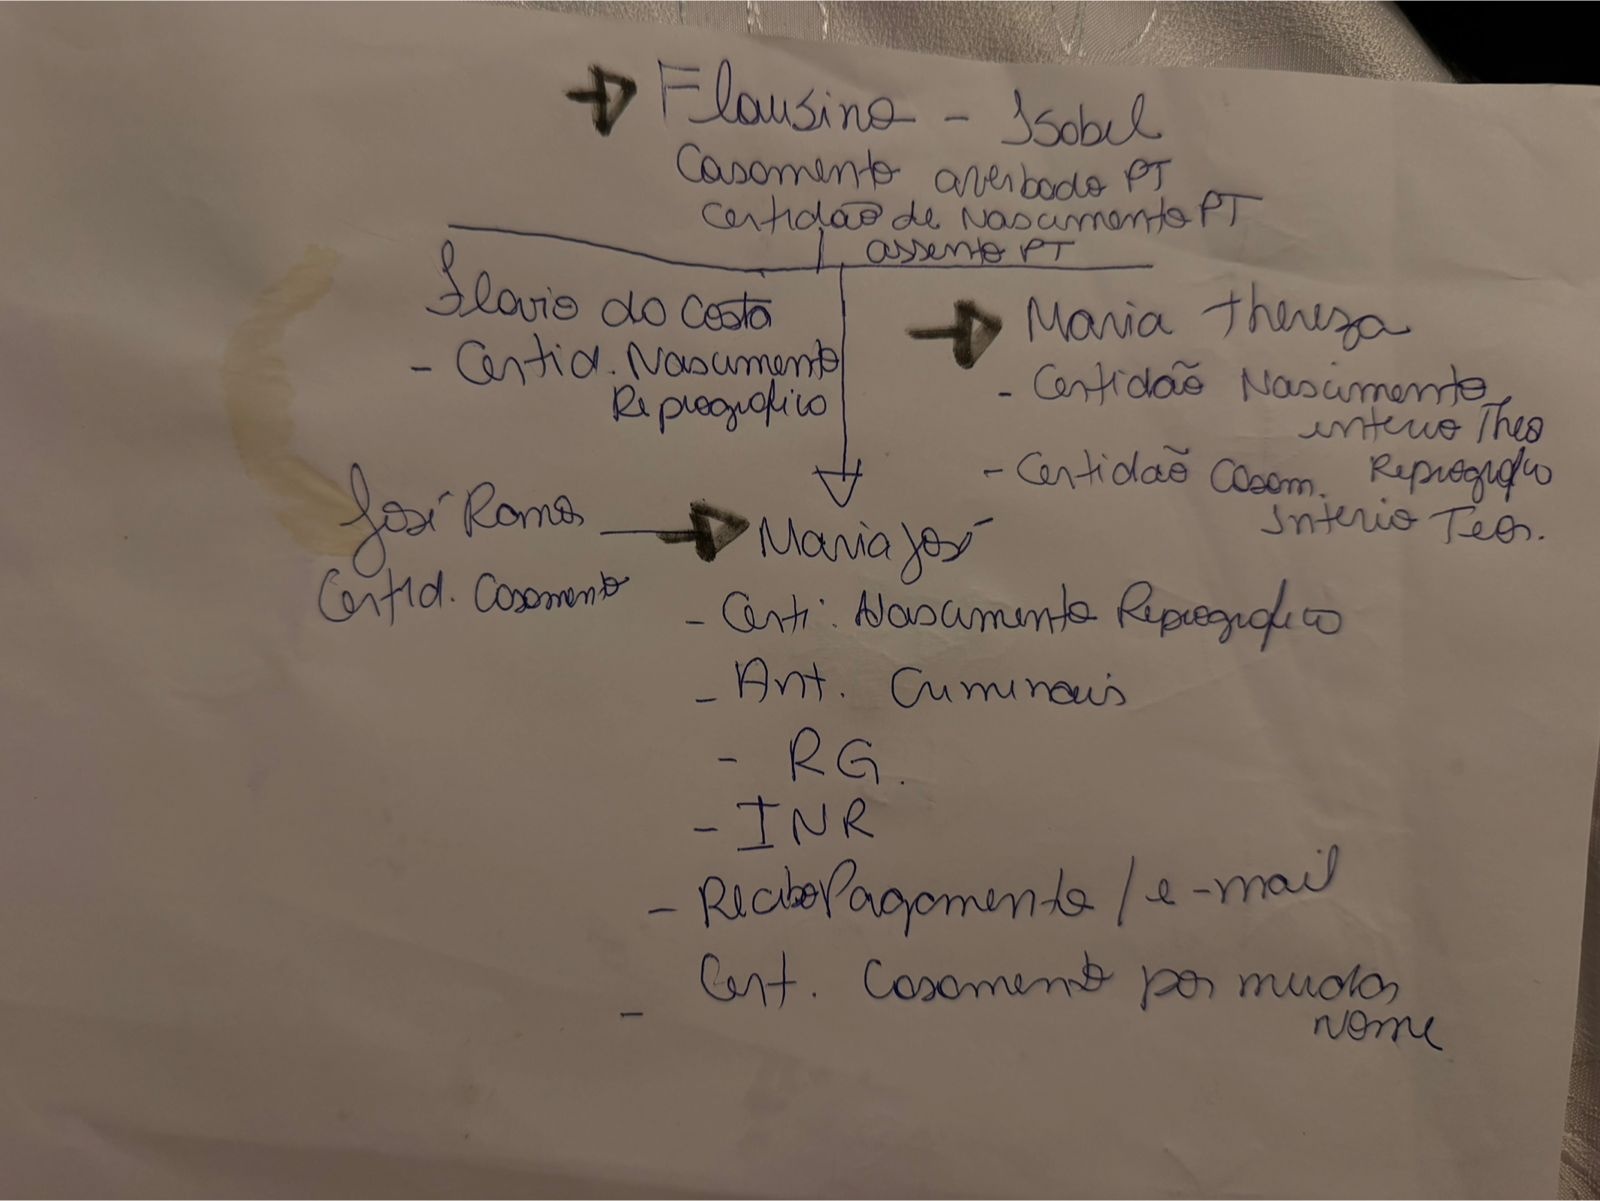 Flausino - Isabel
Casamento averbado PT
Certidão de Nascimento PT
assento PT
Flavio da Costa
- Certid. Nascimento
Reprografico
Maria Thereza
- Certidão Nascimento
inteiro Theo
- Certidão Casam. Reprografico
Inteiro Teor.
José Ramos
Certid. Casamento
Maria José
- Certi. Nascimento Reprografico
- Ant. Criminais
- RG.
- INR
- Recibo Pagamento / e-mail
- Cert. Casamento por mudar
nome